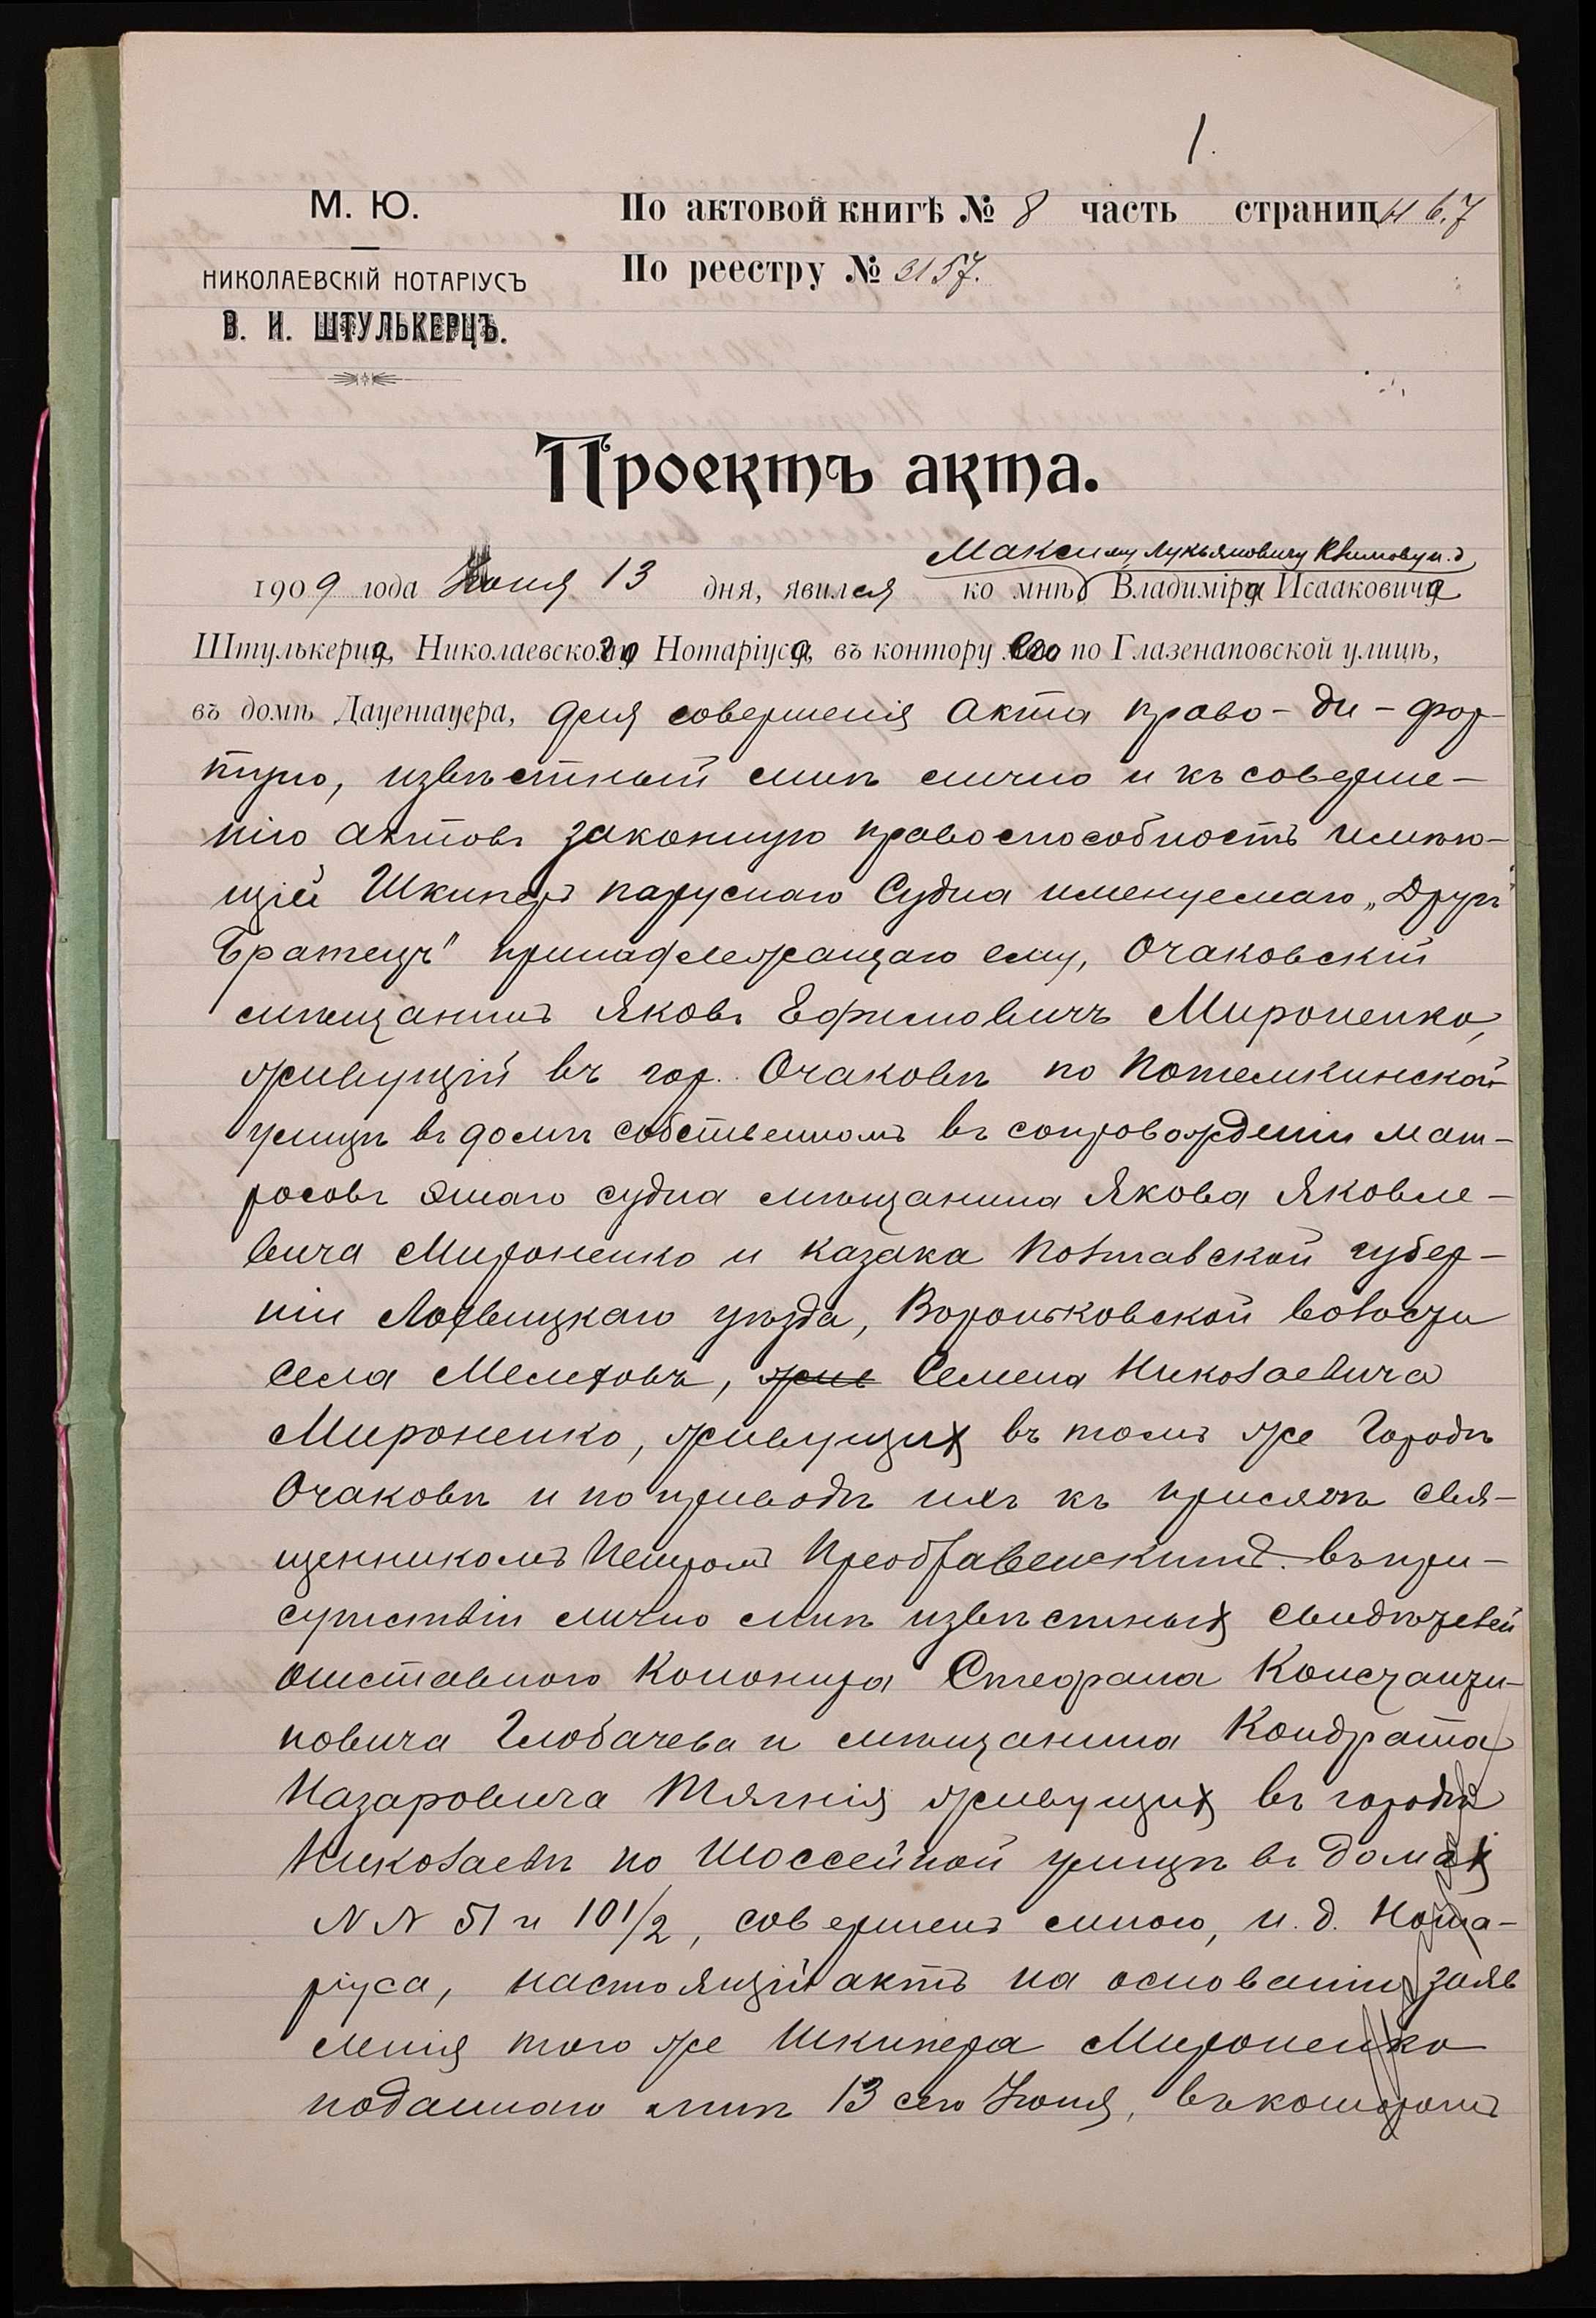 1.
М. Ю.
По актовой книгѣ № 8 часть страницы 6.7
По реестру № 3157.
НИКОЛАЕВСКІЙ НОТАРІУСЪ
В. И. ШТУЛЬКЕРЦЪ.
Проектъ акта.
Максиму Лукьяновичу и. д.
1909 года Іюня 13 дня, явился ко мнѣ Владиміра Исааковича
Штулькерца, Николаевского Нотаріуса, въ контору его по Глазенаповской улицѣ,
въ домѣ Дауенгауера, для совершенія акта право-ди-фор-
туно, извѣстный мнѣ лично и къ соверше-
нію актовъ законную правоспособность имѣю-
щій Шкиперъ паруснаго судна именуемаго „Другъ
Братецъ" принадлежащаго ему, Очаковскій
мѣщанинъ Яковъ Ефимовичъ Мироненко,
живущій въ гор. Очаковѣ по Потемкинской
улицѣ въ домѣ собственномъ въ сопровожденіи мат-
росовъ этаго судна мѣщанина Якова Яковле-
вича Мироненко и казака Полтавской губер-
ніи Лохвицкаго уѣзда, Вороньковской волости
села Мелеховъ, жив Семена Николаевича
Мироненко, живущихъ въ томъ же городѣ
Очаковѣ и по приводѣ ихъ къ присягѣ свя-
щенникомъ Петромъ Преображенскимъ въ при-
сутствіи лично мнѣ извѣстныхъ свидѣтелей
отставного Стефана Константи-
новича Глобачева и мѣщанина Кондрата
Назаровича живущихъ въ городѣ
Николаевѣ по Шоссейной улицѣ въ домахъ
N N 51 и 101/2, совершенъ мною, и. д. Нота-
ріуса, настоящій актъ на основаніи заяв
ленія того же Шкипера Мироненко
поданнаго мнѣ 13 сего Іюня, въ которомъ